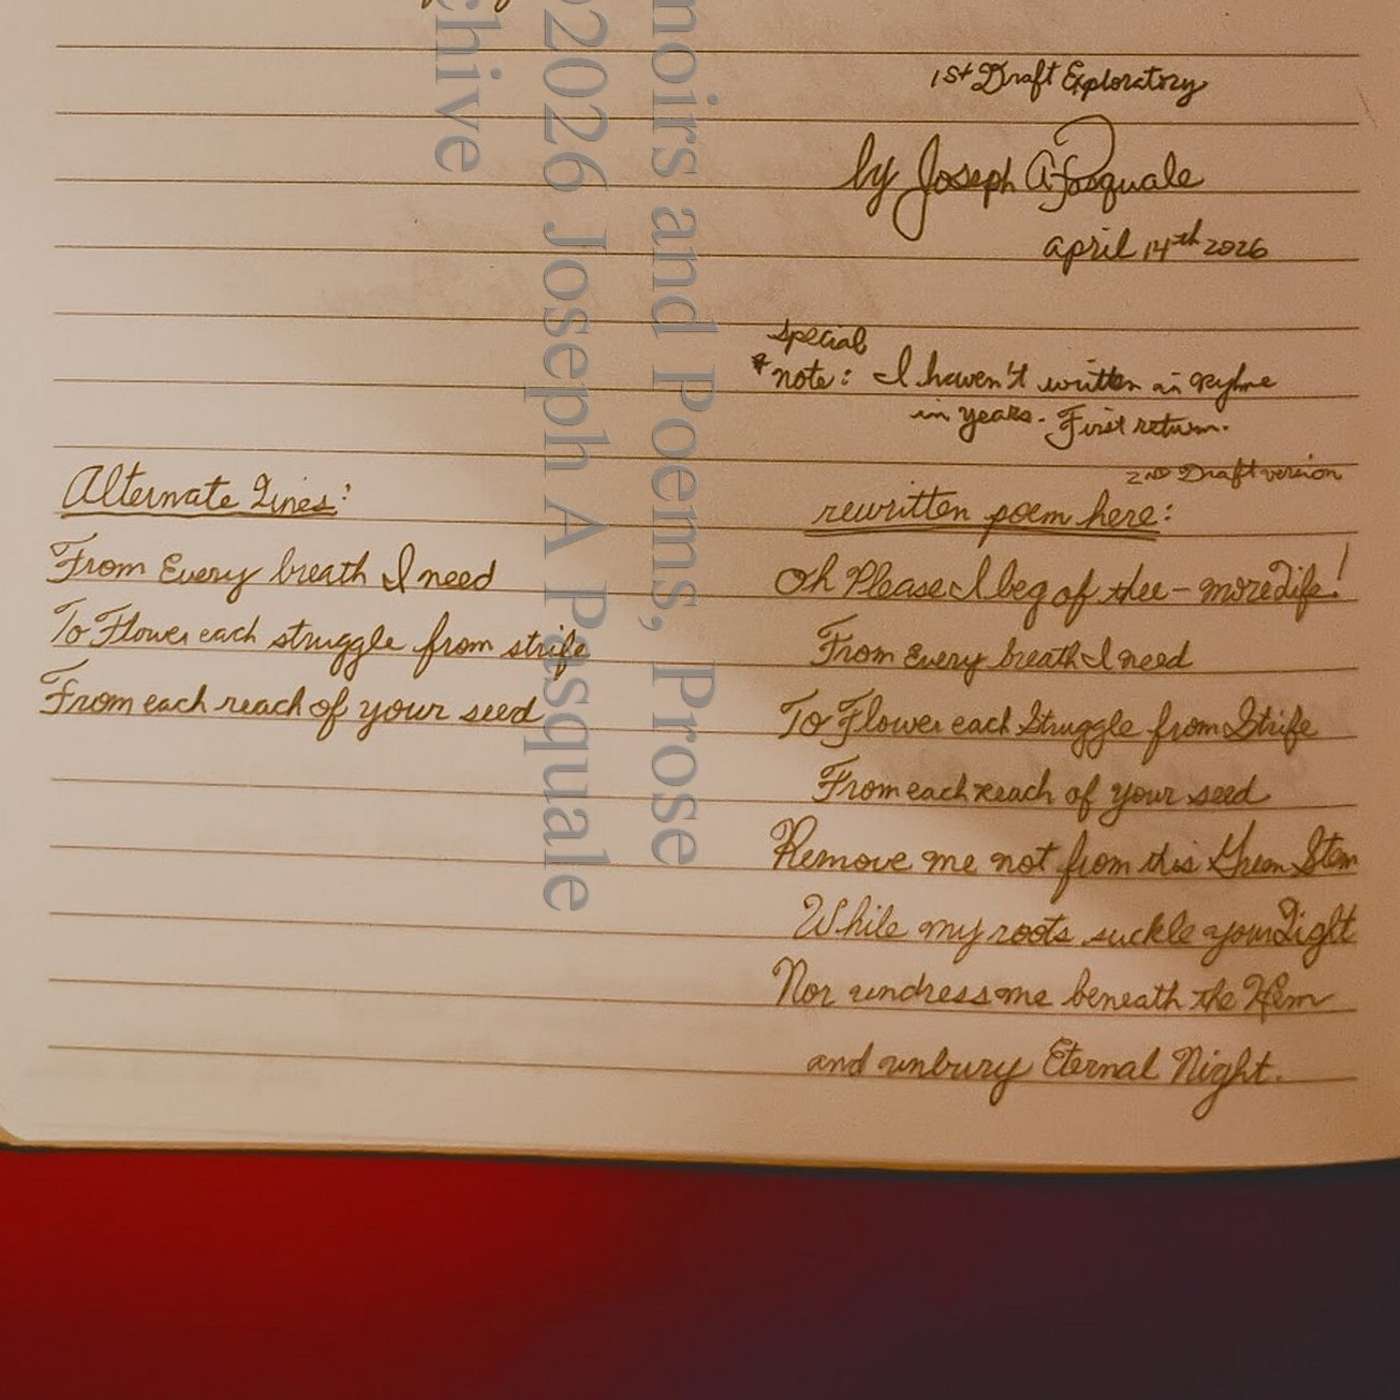 1st Draft Exploratory
by Joseph A Pasquale
april 14th 2026
special
*note: I haven't written in Rhyme
in years. First return.
Alternate Lines:
From Every breath I need
To Flower each struggle from strife
From each reach of your seed
2nd Draft version
rewritten poem here:
Oh Please I beg of thee - more Life!
From Every breath I need
To Flower each Struggle from Strife
From each reach of your seed
Remove me not from this Green Stem
While my roots suckle your Light
Nor undress me beneath the Hem
and unbury Eternal Night.
moirs and Poems, Prose
2026 Joseph A Pasquale
chive